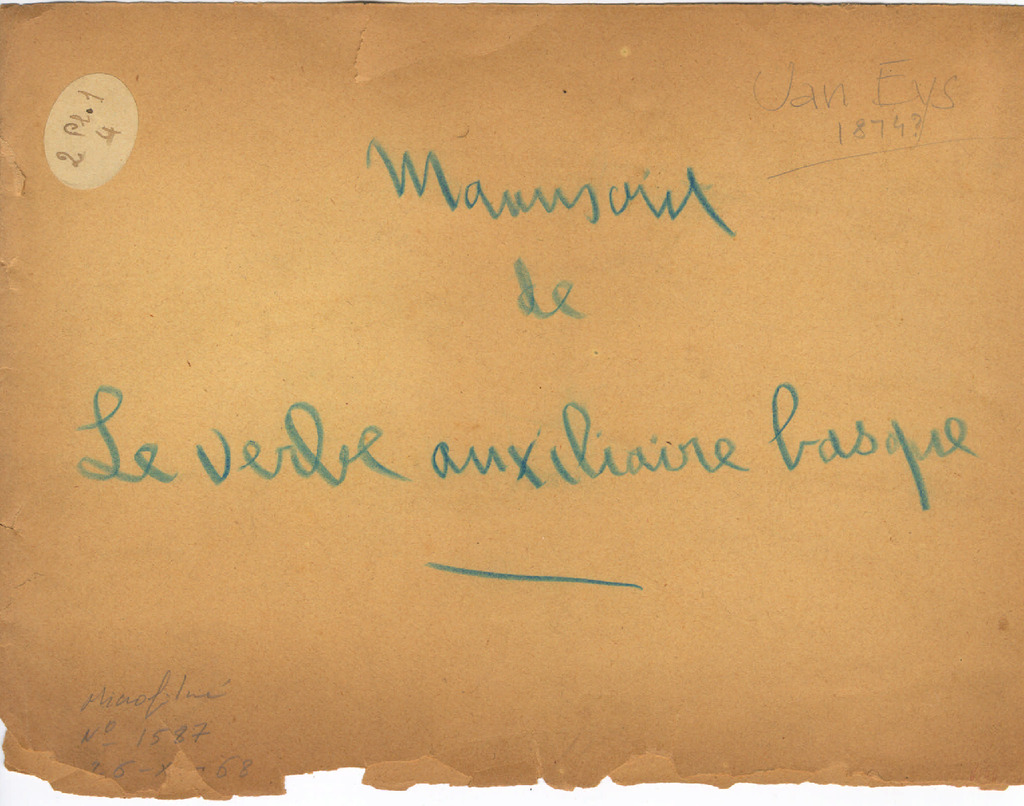 2 Pl. 1
4
Van Eys
1874?
Manuscrit
de
Le verbe auxiliaire basque
Microfilmé
Nº 1587